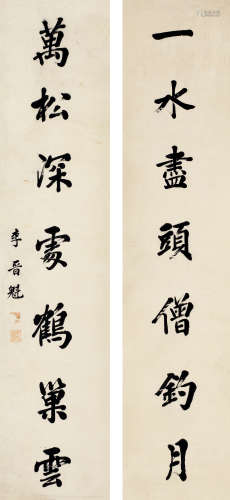 一水盡頭僧釣月
萬松深處鶴巢雲
李晉魁